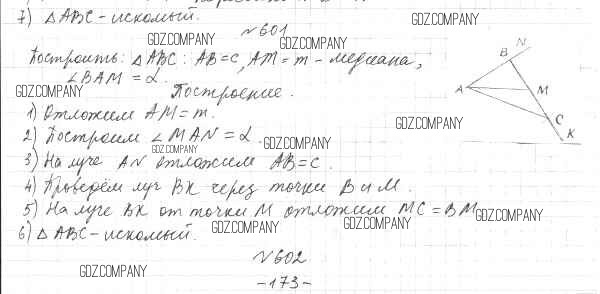 7) △ABC - искомый.
N 601
Построить: △ABC: AB=c, AM=m - медиана,
∠BAM = α.
Построение.
1) Отложим AM=m.
2) Построим ∠MAN=α.
3) На луче AN отложим AB=c.
4) Проведём луч BK через точки B и M.
5) На луче BK от точки M отложим MC=BM
6) △ABC - искомый.
N 602
-173-
N
B
A
M
C
K
GDZ.COMPANY
GDZ.COMPANY
GDZ.COMPANY
GDZ.COMPANY
GDZ.COMPANY
GDZ.COMPANY
GDZ.COMPANY
GDZ.COMPANY
GDZ.COMPANY
GDZ.COMPANY
GDZ.COMPANY
GDZ.COMPANY